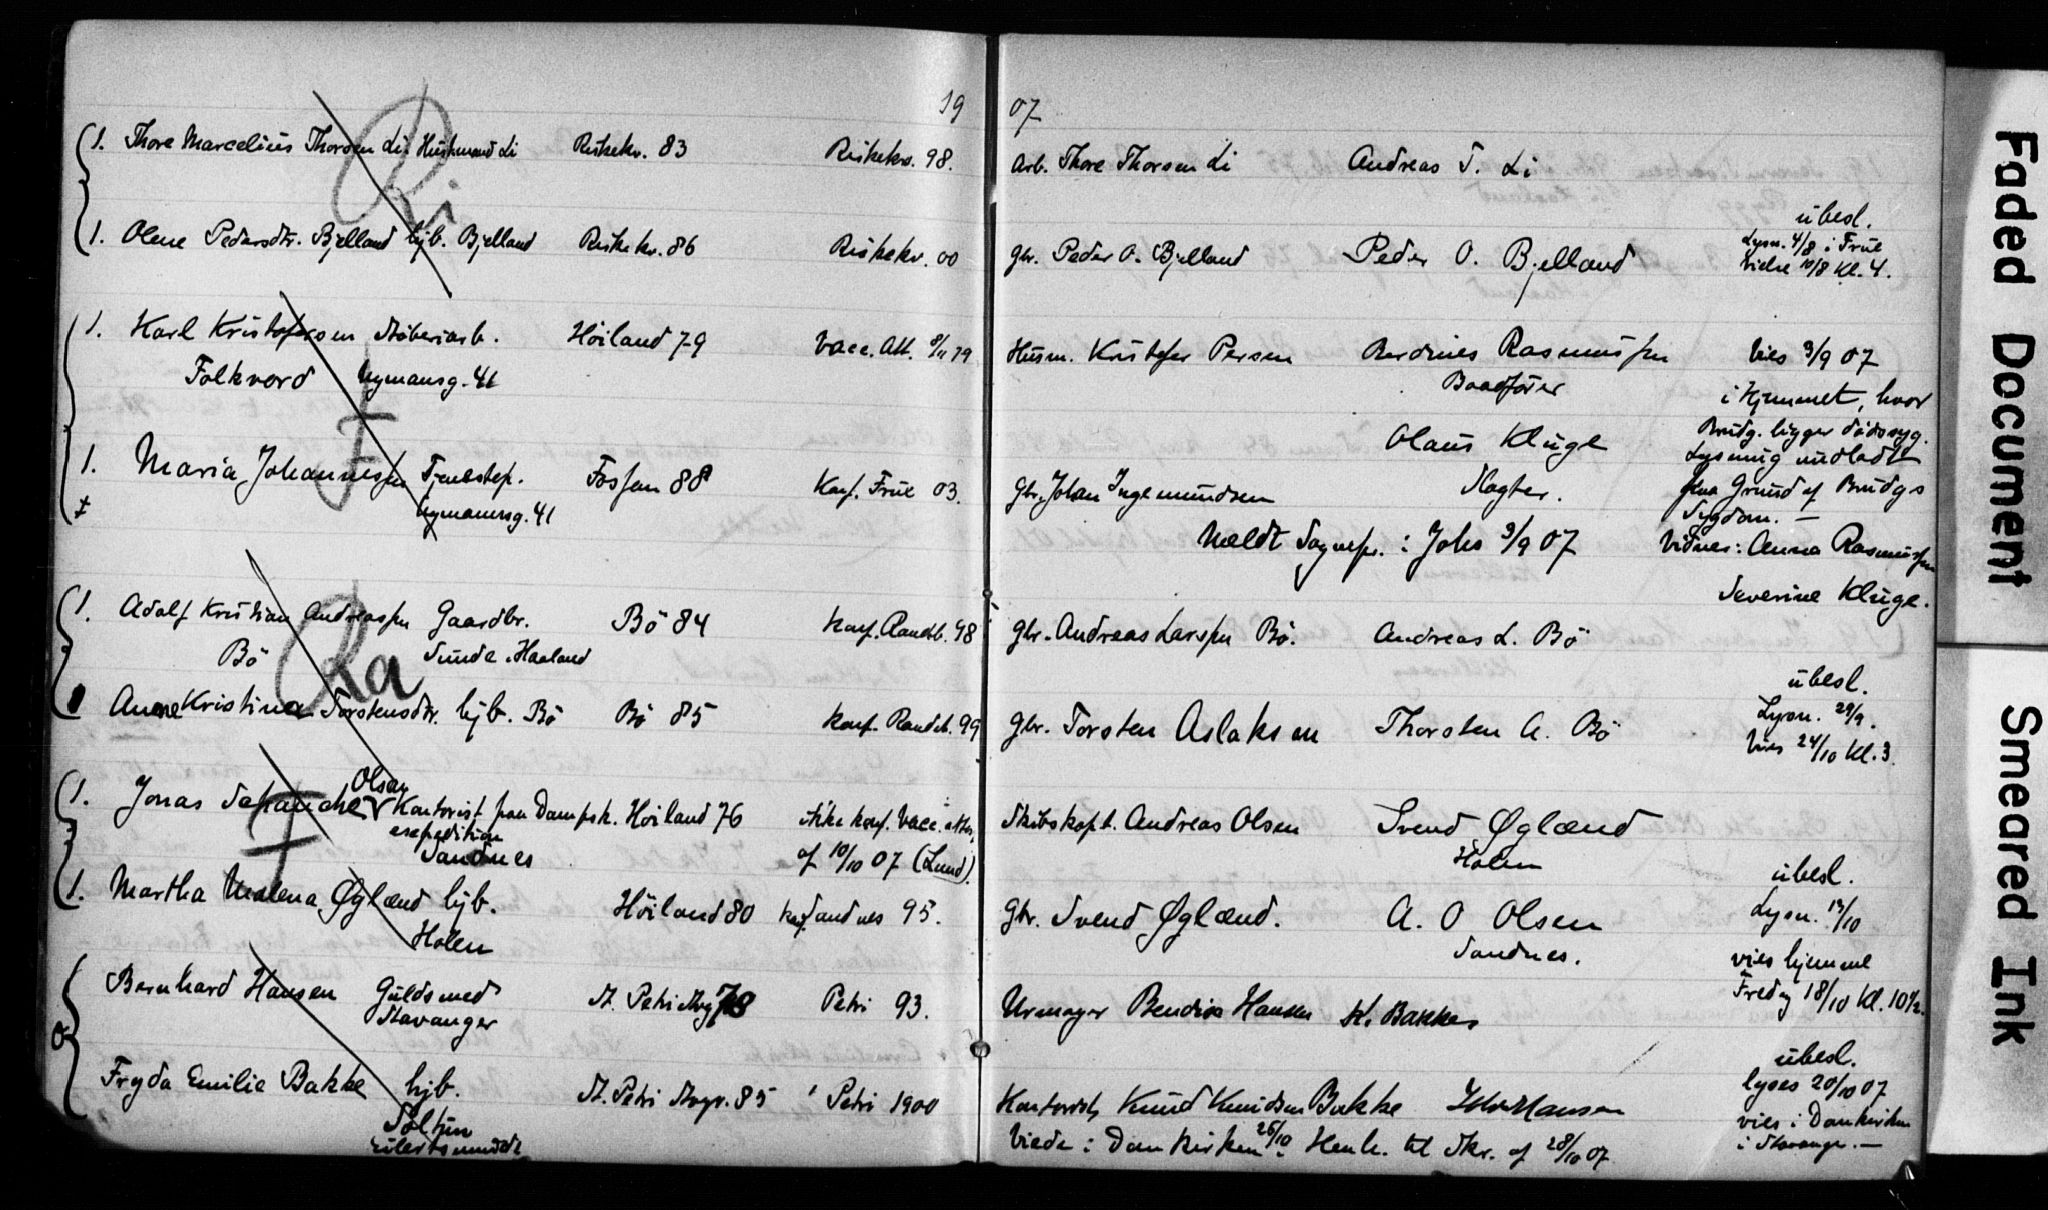 19 07
1. Thore Marcelius Thorsen Li Husmand Li Riskekv. 83 Riskekv. 98. Arb. Thore Thorsen Li Andreas T. Li
Ri
1. Olene Pedersdtr. Bjelland hjb. Bjelland Riskekv. 86 Riskekv. 00 gbr. Peder O. Bjelland Peder O. Bjelland
ubesl.
Lysn. 4/8 i Frue
Vielse 10/8 Kl. 4.
1. Karl Kristofersen Støberiarb. Höiland 79 Vacc. Att. 8/11 79 Husm. Kristofer Persen Berdines Rasmussen Vies 3/9 07
Folkvord Nymansg. 41 Baadfører
i Hjemmet, hvor
F
Olaus Kluge Brudg. ligger dødssyg.
1. Maria Johannessen Tjenestep. Fossan 88 Konf. Frue 03. Gbr. Johan Ingemundsen Slagter.
Nymannsg. 41
Lysning undladt
paa Grund af Brudgs
Sygdom. —
Meldt Sognepr. i Johs 3/9 07 Vidnes: Anna Rasmussen
Severine Kluge.
1. Adolf Kristian Andreassen Gaardbr. Bö 84 Konf. Randb. 98 gbr. Andreas Larssen Bö. Andreas L. Bö
Bö Sunde. Haaland
Ra
ubesl.
1 Anne Kristine Torstensdtr. hjb. Bö Bö 85 Konf. Randb. 99 gbr. Torsten Aslaksen Thorsten A. Bö
Lysn. 29/9.
Vies 24/10 Kl. 3
Olsen
1. Jonas Schanche Kontorist paa Dampsk. Höiland 76 ikke konf. Vacc. attest Skibskapt. Andreas Olsen Svend Øglænd
expedition
Sandnes af 10/10 07 (Lund). Holen
F
ubesl.
1. Martha Malena Øglænd hjb. Höiland 80 Konf. Sandnes 95. Gbr. Svend Øglænd. A. O Olsen
Lysn. 13/10
Holen Sandnes.
vies hjemme
Bernhard Hansen Guldsmed St. Petri Stvgr 78 Petri 93. Urmager Bendix Hansen K. Bakke
Fredag 18/10 Kl. 10 1/2.
Stavanger
0
ubesl.
Fryda Emilie Bakke hjb. St. Petri Stvgr. 85 Petri 1900 Kontorist Knud Knudsen Bakke
lyses 20/10 07
Soltun
vies i Domkirken
i Stavanger. —
Viede i Domkirken 26/10. Henh. til Skr. af 28/10 07
Faded Document
Smeared Ink